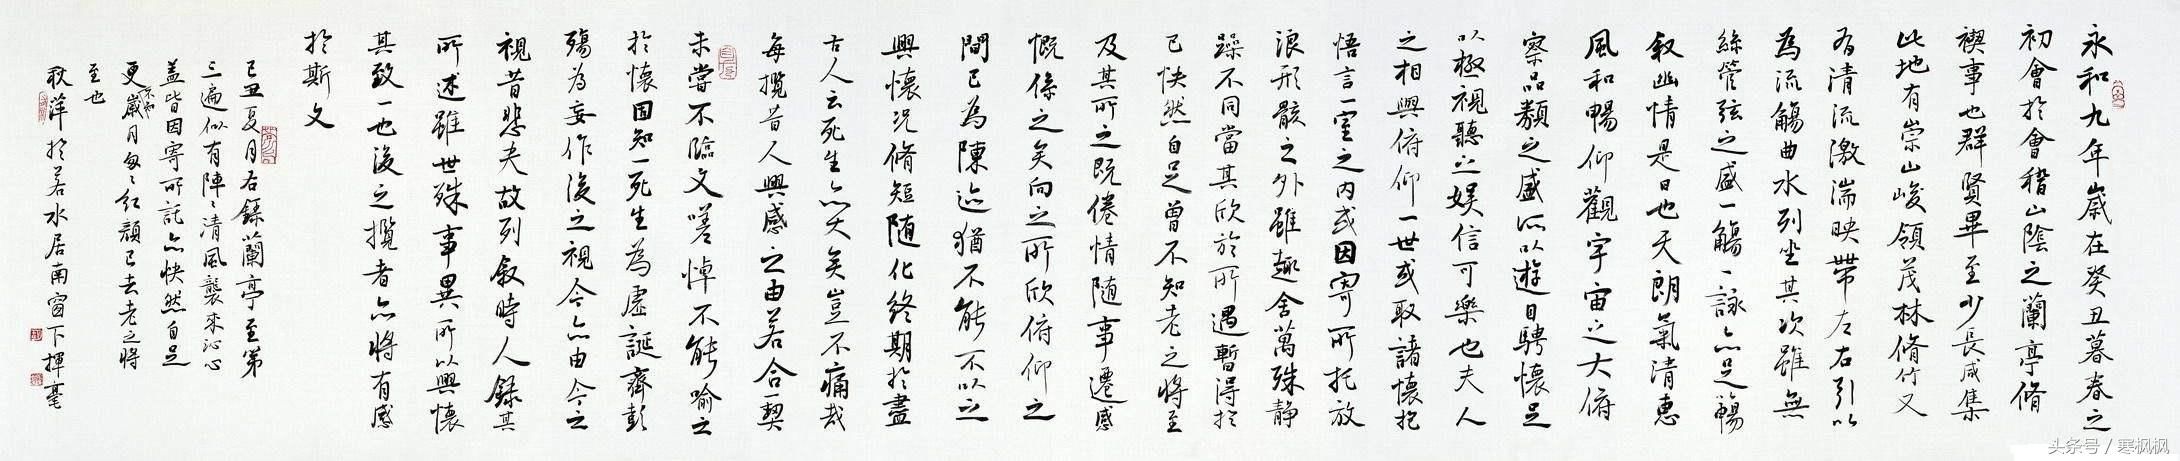 永和九年歲在癸丑暮春之
初會於會稽山陰之蘭亭脩
禊事也群賢畢至少長咸集
此地有崇山峻領茂林脩竹又
有清流激湍映帶左右引以
為流觴曲水列坐其次雖無
絲管弦之盛一觴一詠亦足觴
叙幽情是日也天朗氣清惠
風和暢仰觀宇宙之大俯
察品類之盛所以遊目騁懷足
以極視聽之娱信可樂也夫人
之相與俯仰一世或取諸懷抱
悟言一室之内或因寄所托放
浪形骸之外雖趣舍萬殊静
躁不同當其欣於所遇暫得於
己快然自足曾不知老之將至
及其所之既倦情随事遷感
慨係之矣向之所欣俯仰之
間已為陳迹猶不能不以之
興懷况脩短随化終期於盡
古人云死生亦大矣豈不痛哉
每攬昔人興感之由若合一契
未嘗不臨文嗟悼不能喻之
於懷固知一死生為虚誕齊彭
殤為妄作後之視今亦由今之
視昔悲夫故列叙時人錄其
所述雖世殊事異所以興懷
其致一也後之攬者亦將有感
於斯文
己丑夏月右錄蘭亭至第
三遍似有陣々清風襲來沁心
盖皆因寄所託亦快然自足
更歲月匆々紅顔已去老之將
不知
至也
耿萍於若水居南窗下揮毫
头条号 / 寒枫枫